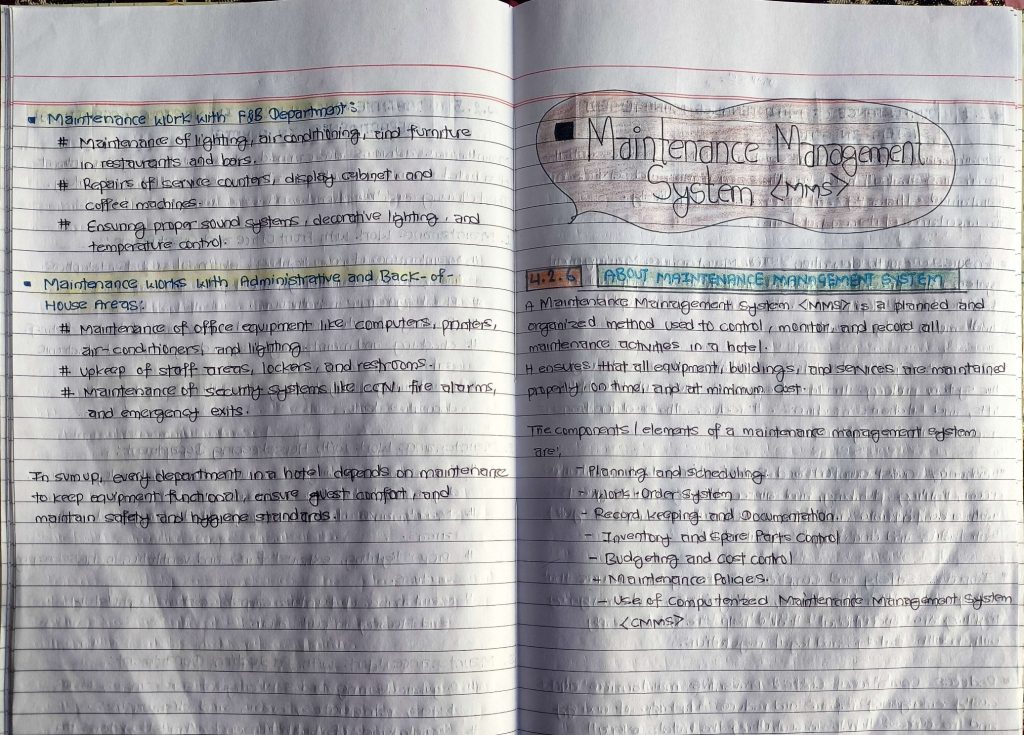 ▪ Maintenance work with F&B Department:
# Maintenance of lighting, air conditioning, and furniture
in restaurants and bars.
# Repairs of service counters, display cabinet, and
coffee machines.
# Ensuring proper sound systems, decorative lighting, and
temperature control.
▪ Maintenance works with Administrative and Back-of-
House Areas:
# Maintenance of office equipment like computers, printers,
air-conditioners, and lighting.
# Upkeep of staff areas, lockers, and restrooms.
# Maintenance of security systems like CCTV, fire alarms,
and emergency exits.
In sum up, every department in a hotel depends on maintenance
to keep equipment functional, ensure guest comfort, and
maintain safety and hygiene standards.
■ Maintenance Management
System <MMS>
4.2.6 ABOUT MAINTENANCE MANAGEMENT SYSTEM
A Maintenance Management System <MMS> is a planned and
organized method used to control, monitor, and record all
maintenance activities in a hotel.
It ensures that all equipment, buildings, and services are maintained
properly, on time, and at minimum cost.
The components / elements of a maintenance management system
are;
- Planning and scheduling
- Work-Order System
- Record keeping and Documentation.
- Inventory and Spare Parts Control
- Budgeting and cost control
- Maintenance Policies.
- Use of Computerized Maintenance Management System
<CMMS>